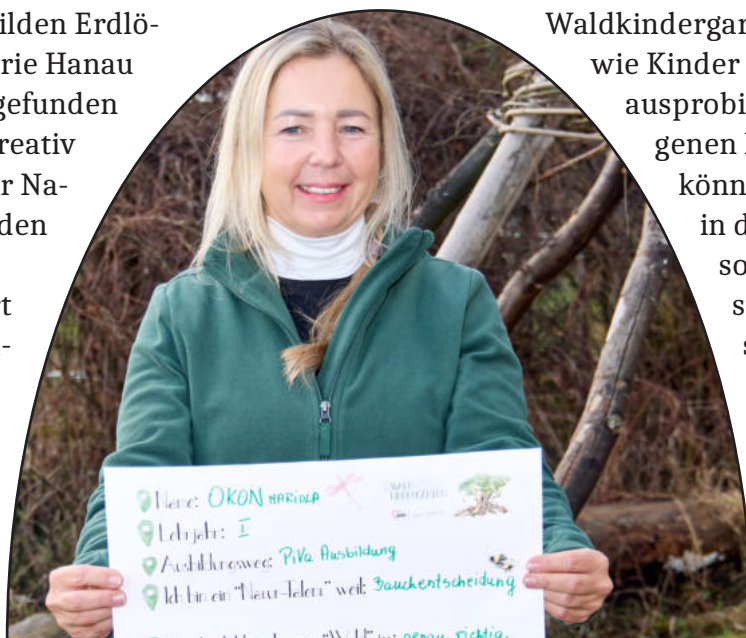 ilden Erdlö-
rie Hanau
gefunden
reativ
r Na-
den
rt
-
Waldkindergar
wie Kinder
ausprobi
genen
könn
in d
so
s
s
Name: OKON MARIOLA
Lehrjahr: I
Ausbildungsweg: PiVa Ausbildung
Ich bin ein "Natur-Talent" weil: Bauchentscheidung
"Wald" genau richtig